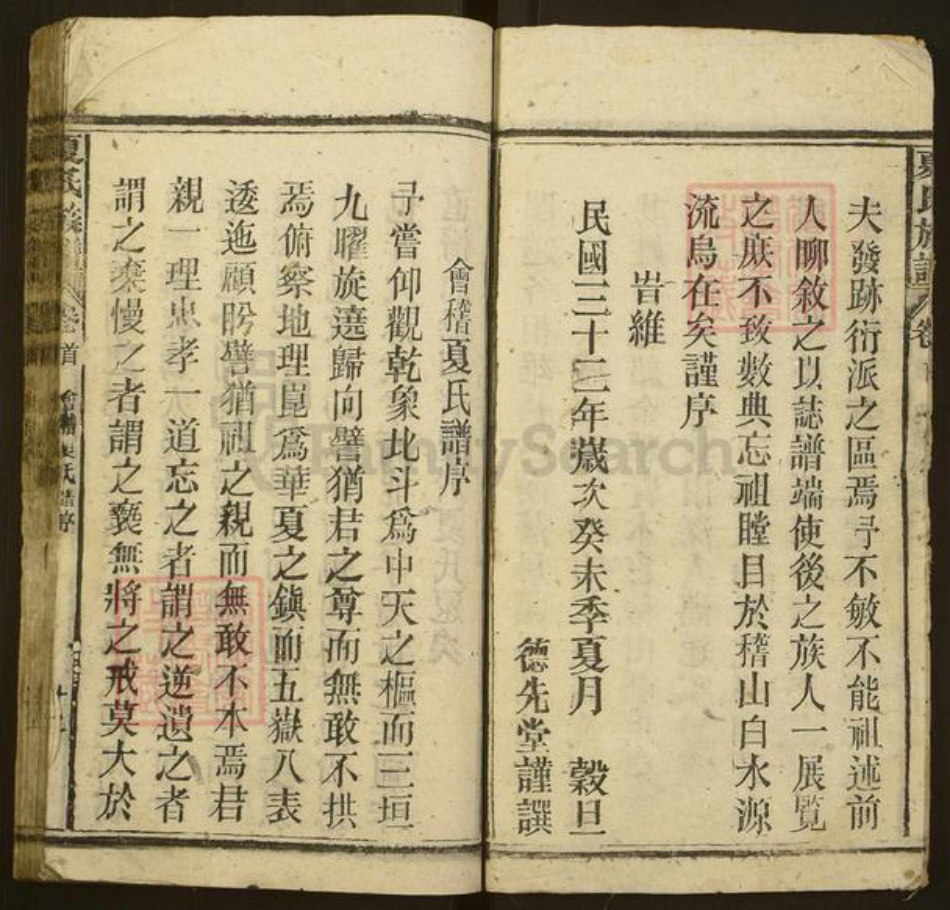 夏氏族譜
卷首
夫發跡衍派之區焉予不敏不能祖述前
人聊敘之以誌譜端使後之族人一展覽
之庶不致數典忘祖瞠目於稽山白水源
流烏在矣謹序
旹維
民國三十二年歲次癸未季夏月 榖旦
德先堂謹譔
會稽夏氏譜序
予嘗仰觀乾象北斗為中天之樞而三垣
九曜旋遶歸向譬猶君之尊而無敢不拱
焉俯察地理崑為華夏之鎮而五嶽八表
逶迤顧盻譬猶祖之親而無敢不本焉君
親一理忠孝一道忘之者謂之逆遺之者
謂之棄慢之者謂之褻無將之戒莫大於
夏氏族譜
卷首
會稽夏氏譜序
FamilySearch